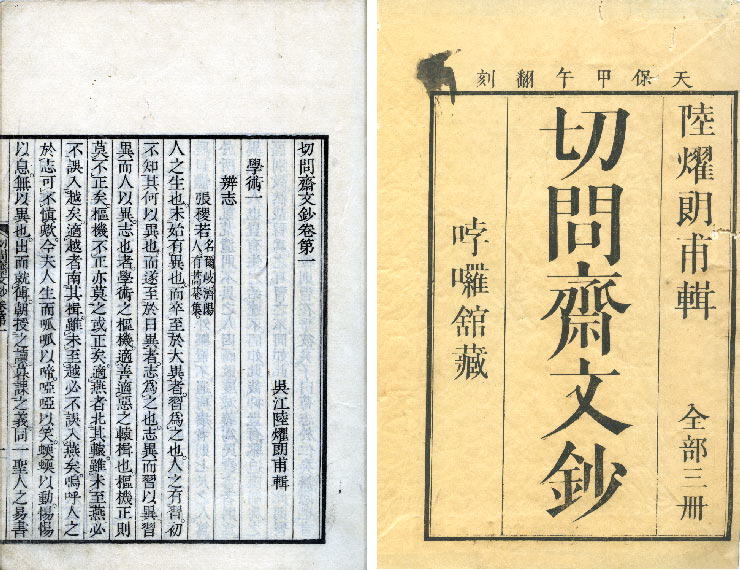 天保甲午翻刻
陸燿朗甫輯 全部三冊
切問齋文鈔
哱囉舘藏
切問齋文鈔卷第一
吳江陸燿朗甫輯
學術一
辨志
張稷若 名爾歧濟陽人有蒿菴集。
人之生也。未始有異也。而卒至於大異者。習為之也。人之有習。初
不知其何以異也。而遂至於日異者。志為之也。志異而習以異。習
異而人以異。志也者。學術之樞機。適善適惡之轅楫也。樞機正則
莫不正矣。樞機不正。亦莫之或正矣。適燕者北其轅。雖未至燕。必
不誤入越矣。適越者南其楫。雖未至越。必不誤入燕矣。嗚呼。人之
於志。可不慎歟。今夫人生而呱呱以啼。啞啞以笑。蠕蠕以動。惕惕
以息。無以異也。出而就傅。朝授之讀。暮課之義。同一聖人之易書